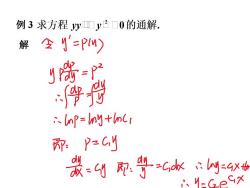 例 3 求方程 yy□□ y □2 □0 的通解.
解 令 y' = p(y)
y p dp/dy = p²
∴ ∫ dp/p = ∫ dy/y
∴ lnp = lny + lnC₁
即: p = C₁y
dy/dx = C₁y 即: dy/y = C₁dx ∴ lny = C₁x +
∴ y = C₂e^{C₁x}